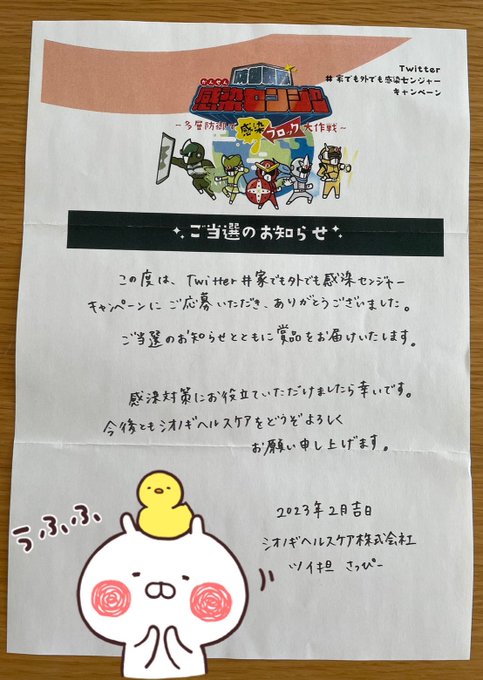 Twitter
#家でも外でも感染センジャー
キャンペーン
かんせん
感染センジャー
~多層防御で感染ブロック大作戦~
ご当選のお知らせ
この度は、Twitter#家でも外でも感染センジャー
キャンペーンにご応募いただき、ありがとうございました。
ご当選のお知らせとともに賞品をお届けいたします。
感染対策にお役立ていただけましたら幸いです。
今後ともシオノギヘルスケアをどうぞよろしく
お願い申し上げます。
2023年2月吉日
シオノギヘルスケア株式会社
ツイ担 さっぴー
うふふ